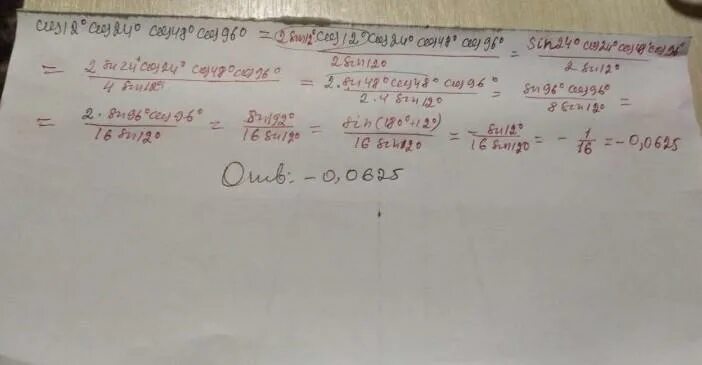 cos12° cos24° cos48° cos96° = 2 sin12° cos12° cos24° cos48° cos96° / 2 sin12° = sin24° cos24° cos48° cos96° / 2 sin12°
= 2 sin24° cos24° cos48° cos96° / 4 sin12° = 2·sin48° cos48° cos96° / 2·4 sin12° = sin96° cos96° / 8 sin12° =
= 2·sin96° cos96° / 16 sin12° = sin192° / 16 sin12° = sin(180°+12°) / 16 sin12° = -sin12° / 16 sin12° = - 1/16 = -0,0625
Отв: -0,0625